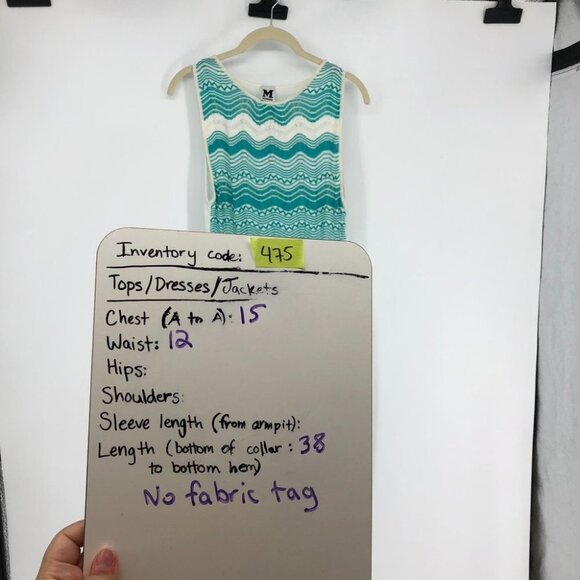 M
Inventory code: 475
Tops/Dresses/Jackets
Chest (A to A): 15
Waist: 12
Hips:
Shoulders:
Sleeve length (from armpit):
Length (bottom of collar : 38
to bottom hem)
No fabric tag